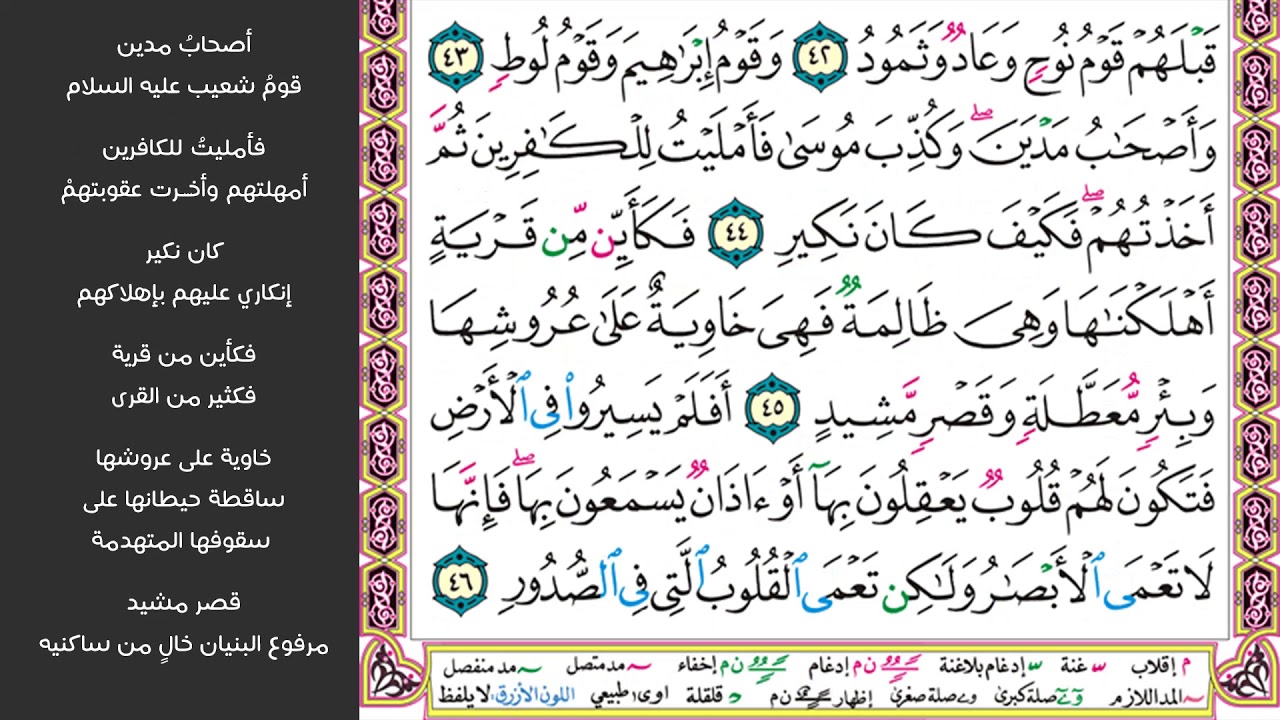 قَبۡلَهُمۡ قَوۡمُ نُوحٖ وَعَادٞ وَثَمُودُ ٤٢ وَقَوۡمُ إِبۡرَٰهِيمَ وَقَوۡمُ لُوطٖ ٤٣
وَأَصۡحَٰبُ مَدۡيَنَۖ وَكُذِّبَ مُوسَىٰ فَأَمۡلَيۡتُ لِلۡكَٰفِرِينَ ثُمَّ
أَخَذۡتُهُمۡۖ فَكَيۡفَ كَانَ نَكِيرِ ٤٤ فَكَأَيِّن مِّن قَرۡيَةٍ
أَهۡلَكۡنَٰهَا وَهِيَ ظَالِمَةٞ فَهِيَ خَاوِيَةٌ عَلَىٰ عُرُوشِهَا
وَبِئۡرٖ مُّعَطَّلَةٖ وَقَصۡرٖ مَّشِيدٍ ٤٥ أَفَلَمۡ يَسِيرُواْ فِي ٱلۡأَرۡضِ
فَتَكُونَ لَهُمۡ قُلُوبٞ يَعۡقِلُونَ بِهَآ أَوۡ ءَاذَانٞ يَسۡمَعُونَ بِهَاۖ فَإِنَّهَا
لَا تَعۡمَى ٱلۡأَبۡصَٰرُ وَلَٰكِن تَعۡمَى ٱلۡقُلُوبُ ٱلَّتِي فِي ٱلصُّدُورِ ٤٦
م إقلاب س غنة س إدغام بلاغنة ن م إدغام ن م إخفاء مد متصل مد منفصل
المد اللازم صلة كبرى صلة صغرى إظهار ن م قلقلة اوى طبيعي اللون الأزرق: لا يلفظ
أصحابُ مدين
قومُ شعيب عليه السلام
فأمليتُ للكافرين
أمهلتهم وأخرت عقوبتهمْ
كان نكير
إنكاري عليهم بإهلاكهم
فكأين من قرية
فكثير من القرى
خاوية على عروشها
ساقطة حيطانها على
سقوفها المتهدمة
قصر مشيد
مرفوع البنيان خالٍ من ساكنيه